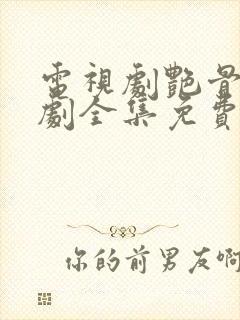 電視劇艷骨
劇全集免費
你的前男友啊